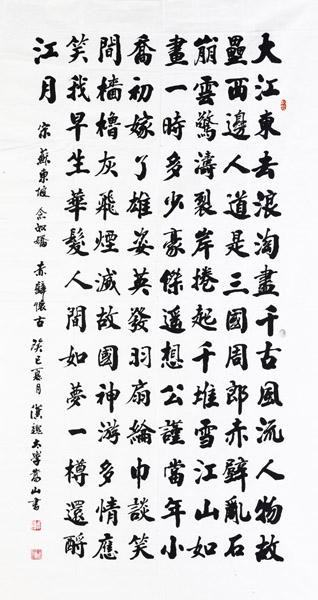 大江東去浪淘盡千古風流人物故
壘西邊人道是三國周郎赤壁亂石
崩雲驚濤裂岸捲起千堆雪江山如
畫一時多少豪傑遥想公謹當年小
喬初嫁了雄姿英發羽扇綸巾談笑
間檣櫓灰飛煙滅故國神游多情應
笑我早生華髮人間如夢一樽還酹
江月 宋蘇東坡念奴嬌 赤壁懷古 癸巳夏月 大學嵩山書